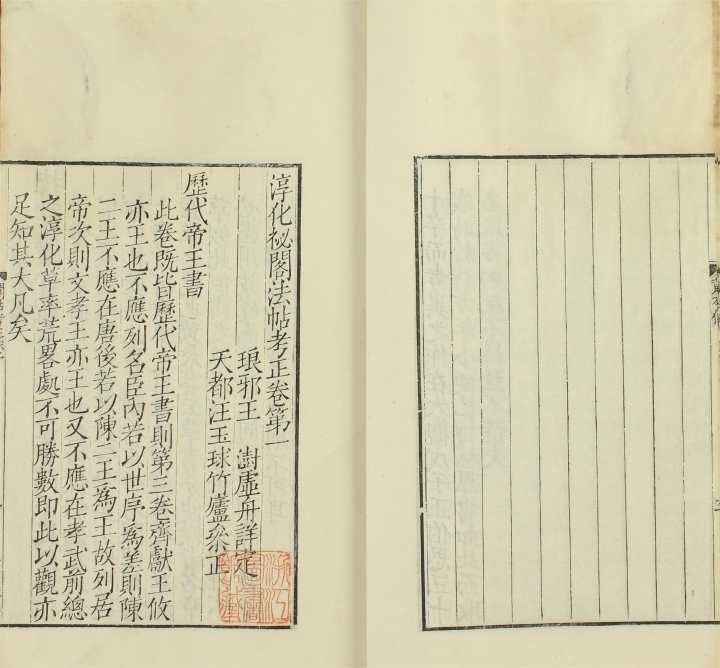 淳化祕閣法帖考正卷第一
琅邪王 澍虛舟詳定
天都汪玉球竹廬叅正
歷代帝王書
此卷既皆歷代帝王書則第三卷齊獻王攸
亦王也不應列名臣內若以世序為差則陳
二王不應在唐後若以陳二王為王故列居
帝次則文孝王亦王也又不應在孝武前總
之淳化草率荒畧處不可勝數即此以觀亦
足知其大凡矣